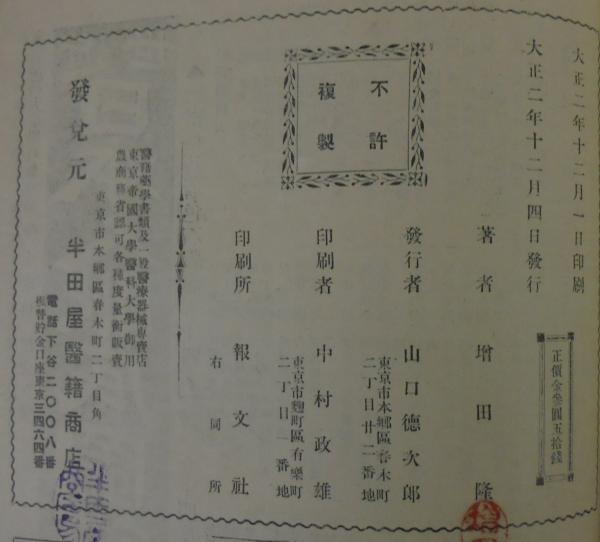 大正二年十二月一日印刷
大正二年十二月四日發行
正價金叄圓五拾錢
不許
複製
著者 增田隆
發行者 山口德次郎
東京市本鄉區春木町
二丁目廿二番地
印刷者 中村政雄
東京市麴町區有樂町
二丁目一番地
印刷所 報文社
右同所
醫籍藥學書類及一般醫療器械專賣店
東京帝國大學醫科大學御用
農商務省認可各種度量衡販賣
東京市本鄉區春木町二丁目角
發兌元 半田屋醫籍商店
電話下谷二〇〇八番
振替貯金口座東京三四六四番